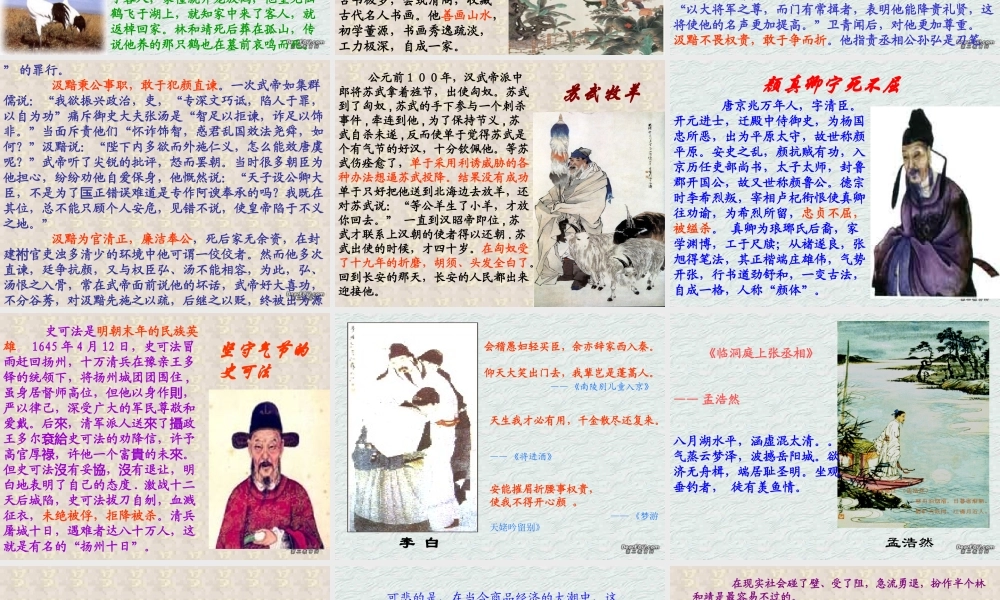 鹤飞于湖上，就知家中来了客人，就
返棹回家。林和靖死后葬在孤山，传
说他养的那只鹤也在墓前哀鸣而死。
古代名人书画。他善画山水，
初学董源，书画秀逸疏淡，
工力极深，自成一家。
“以大将军之尊，而门有常揖者，表明他能降贵礼贤，这
将使他的名声更加提高。”卫青闻后，对他更加尊重。
汲黯不畏权贵，敢于争而折。他指责丞相公孙弘是刀笔
”的罪行。
汲黯秉公事职，敢于犯颜直谏。一次武帝如集群
儒说：“我欲振兴政治，吏，“专深文巧诋，陷人于罪，
以自为功”痛斥御史大夫张汤是“智足以拒谏，诈足以饰
非。”当面斥责他们“怀诈饰智，惑君乱国效法尧舜，如
何？”汲黯说：“陛下内多欲而外施仁义，怎么能效唐虞
呢？”武帝听了尖锐的批评，怒而罢朝。当时很多朝臣为
他担心，纷纷劝他自爱保身，他慨然说：“天子设公卿大
臣，不是为了匡正错误难道是专作阿谀奉承的吗？我既在
其位，总不能只顾个人安危，见错不说，使皇帝陷于不义
之地。”
汲黯为官清正，廉洁奉公，死后家无余资，在封
建制官吏浊多清少的环境中他可谓一佼佼者。然而他多次
直谏，廷争抗颜，又与权臣弘、汤不能相容，为此，弘，
汤恨之入骨，常在武帝面前说他的坏话，武帝好大喜功，
不分莠莠，对汲黯先施之以疏，后继之以贬，终被出为淮
苏武牧羊
公元前１００年，汉武帝派中
郎将苏武拿着旌节，出使匈奴。苏武
到了匈奴，苏武的手下参与一个刺杀
事件，牵连到他，为了保持节义，苏
武自杀未遂，反而使单于觉得苏武是
个有气节的好汉，十分钦佩他。等苏
武伤痊愈了，单于采用利诱威胁的各
种办法想逼苏武投降。结果没有成功
单于只好把他送到北海边去放羊，还
对苏武说：“等公羊生了小羊，才放
你回去。”一直到汉昭帝即位，苏
武才联系上汉朝的使者得以还朝。苏
武出使的时候，才四十岁。在匈奴受
了十九年的折磨，胡须、头发全白了。
回到长安的那天，长安的人民都出来
迎接他。
颜真卿宁死不屈
唐京兆万年人，字清臣。
开元进士，迁殿中侍御史，为杨国
忠所恶，出为平原太守，故世称颜
平原。安史之乱，颜抗贼有功，入
京历任吏部尚书，太子太师，封鲁
郡开国公，故又世称颜鲁公。德宗
时李希烈叛，宰相卢杞衔恨使真卿
往劝谕，为希烈所留，忠贞不屈，
被缢杀。真卿为琅琊氏后裔，家
学渊博，工于尺牍；从褚遂良，张
旭得笔法，其正楷端庄雄伟，气势
开张，行书遒劲舒和，一变古法，
自成一格，人称“颜体”。
坚守气节的
史可法
史可法是明朝末年的民族英
雄。1645年4月12日，史可法冒
雨赶回扬州，十万清兵在豫亲王多
铎的统领下，将扬州城团团围住，
虽身居督师高位，但他以身作則，
严以律己，深受广大的军民尊敬和
爱戴。后來，清军派人送來了攝政
王多尔袞給史可法的劝降信，许予
高官厚祿，许他一个富貴的未來。
但史可法沒有妥協，沒有退让，明
白地表明了自己的态度．激战十二
天后城陷，史可法拔刀自刎，血溅
征衣，未绝被俘，拒降被杀。清兵
屠城十日，遇难者达八十万人，这
就是有名的“扬州十日”。
会稽愚妇轻买臣，余亦辞家西入秦。
仰天大笑出门去，我辈岂是蓬蒿人。
——《南陵别儿童入京》
天生我才必有用，千金散尽还复来。
——《将进酒》
安能摧眉折腰事权贵，
使我不得开心颜 。
——《梦游
天姥吟留别》
李 白
《临洞庭上张丞相》
—— 孟浩然
八月湖水平，涵虚混太清。。
气蒸云梦泽，波撼岳阳城。欲
济无舟楫，端居耻圣明。坐观
垂钓者， 徒有羡鱼情。
孟浩然
可悲的是，在当今商品经济的大潮中，这
在现实社会碰了壁、受了阻，急流勇退，扮作半个林
和靖是最容易不过的。